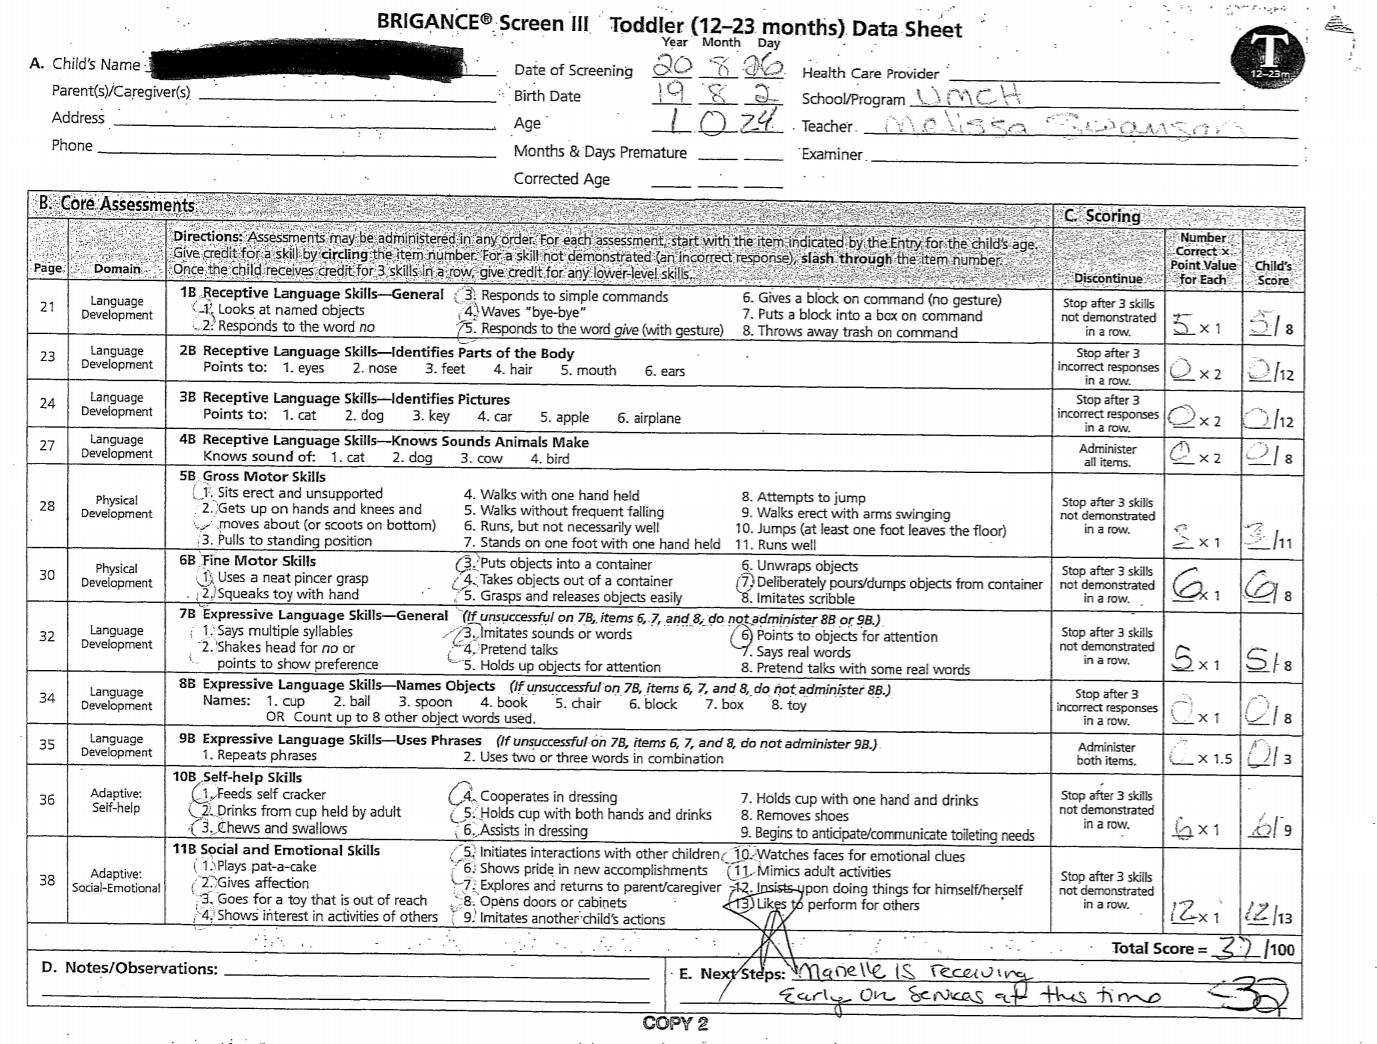 BRIGANCE® Screen III Toddler (12–23 months) Data Sheet
Year Month Day
T
12–23m
A. Child's Name
Date of Screening 20 8 26
Health Care Provider
Parent(s)/Caregiver(s)
Birth Date 19 8 2
School/Program UMCH
Address
Age 1 0 24
Teacher Melissa Swanson
Phone
Months & Days Premature
Examiner
Corrected Age
B. Core Assessments
C. Scoring
Page
Domain
Directions: Assessments may be administered in any order. For each assessment, start with the item indicated by the Entry for the child's age.
Give credit for a skill by circling the item number. For a skill not demonstrated (an incorrect response), slash through the item number.
Once the child receives credit for 3 skills in a row, give credit for any lower-level skills.
Discontinue
Number Correct × Point Value for Each
Child's Score
21 Language Development
1B Receptive Language Skills—General
1. Looks at named objects
2. Responds to the word no
3. Responds to simple commands
4. Waves "bye-bye"
5. Responds to the word give (with gesture)
6. Gives a block on command (no gesture)
7. Puts a block into a box on command
8. Throws away trash on command
Stop after 3 skills not demonstrated in a row.
5 × 1 5/8
23 Language Development
2B Receptive Language Skills—Identifies Parts of the Body
Points to: 1. eyes 2. nose 3. feet 4. hair 5. mouth 6. ears
Stop after 3 incorrect responses in a row.
0 × 2 0/12
24 Language Development
3B Receptive Language Skills—Identifies Pictures
Points to: 1. cat 2. dog 3. key 4. car 5. apple 6. airplane
Stop after 3 incorrect responses in a row.
0 × 2 0/12
27 Language Development
4B Receptive Language Skills—Knows Sounds Animals Make
Knows sound of: 1. cat 2. dog 3. cow 4. bird
Administer all items.
0 × 2 0/8
28 Physical Development
5B Gross Motor Skills
1. Sits erect and unsupported
2. Gets up on hands and knees and
moves about (or scoots on bottom)
3. Pulls to standing position
4. Walks with one hand held
5. Walks without frequent falling
6. Runs, but not necessarily well
7. Stands on one foot with one hand held
8. Attempts to jump
9. Walks erect with arms swinging
10. Jumps (at least one foot leaves the floor)
11. Runs well
Stop after 3 skills not demonstrated in a row.
3 × 1 3/11
30 Physical Development
6B Fine Motor Skills
1. Uses a neat pincer grasp
2. Squeaks toy with hand
3. Puts objects into a container
4. Takes objects out of a container
5. Grasps and releases objects easily
6. Unwraps objects
7. Deliberately pours/dumps objects from container
8. Imitates scribble
Stop after 3 skills not demonstrated in a row.
6 × 1 6/8
32 Language Development
7B Expressive Language Skills—General (If unsuccessful on 7B, items 6, 7, and 8, do not administer 8B or 9B.)
1. Says multiple syllables
2. Shakes head for no or
points to show preference
3. Imitates sounds or words
4. Pretend talks
5. Holds up objects for attention
6. Points to objects for attention
7. Says real words
8. Pretend talks with some real words
Stop after 3 skills not demonstrated in a row.
5 × 1 5/8
34 Language Development
8B Expressive Language Skills—Names Objects (If unsuccessful on 7B, items 6, 7, and 8, do not administer 8B.)
Names: 1. cup 2. ball 3. spoon 4. book 5. chair 6. block 7. box 8. toy
OR Count up to 8 other object words used.
Stop after 3 incorrect responses in a row.
0 × 1 0/8
35 Language Development
9B Expressive Language Skills—Uses Phrases (If unsuccessful on 7B, items 6, 7, and 8, do not administer 9B.)
1. Repeats phrases 2. Uses two or three words in combination
Administer both items.
0 × 1.5 0/3
36 Adaptive: Self-help
10B Self-help Skills
1. Feeds self cracker
2. Drinks from cup held by adult
3. Chews and swallows
4. Cooperates in dressing
5. Holds cup with both hands and drinks
6. Assists in dressing
7. Holds cup with one hand and drinks
8. Removes shoes
9. Begins to anticipate/communicate toileting needs
Stop after 3 skills not demonstrated in a row.
6 × 1 6/9
38 Adaptive: Social-Emotional
11B Social and Emotional Skills
1. Plays pat-a-cake
2. Gives affection
3. Goes for a toy that is out of reach
4. Shows interest in activities of others
5. Initiates interactions with other children
6. Shows pride in new accomplishments
7. Explores and returns to parent/caregiver
8. Opens doors or cabinets
9. Imitates another child's actions
10. Watches faces for emotional clues
11. Mimics adult activities
12. Insists upon doing things for himself/herself
13. Likes to perform for others
Stop after 3 skills not demonstrated in a row.
12 × 1 12/13
Total Score = 37/100
D. Notes/Observations:
E. Next Steps: Manelle is receiving
Early On Services at this time
COPY 2